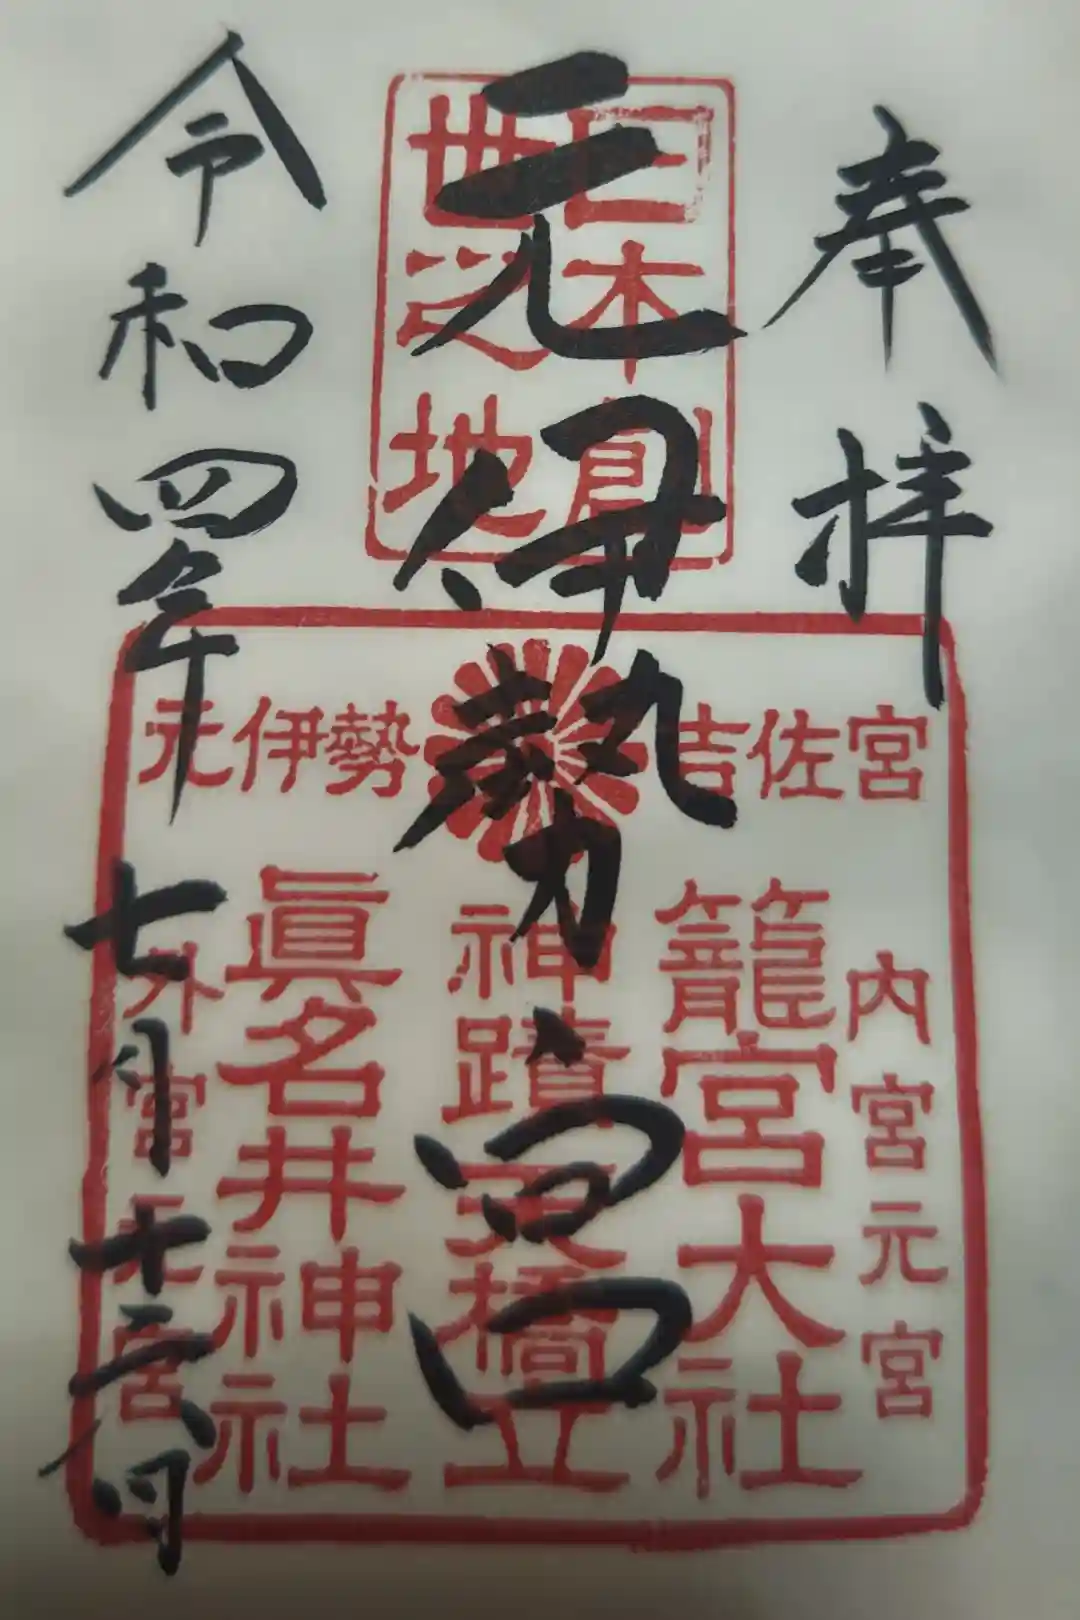 奉拝
日本創
世之地
元伊勢宮
元伊勢 吉佐宮
内宮元宮
籠宮大社
神蹟天橋立
眞名井神社
外宮元宮
令和四年七月十六日